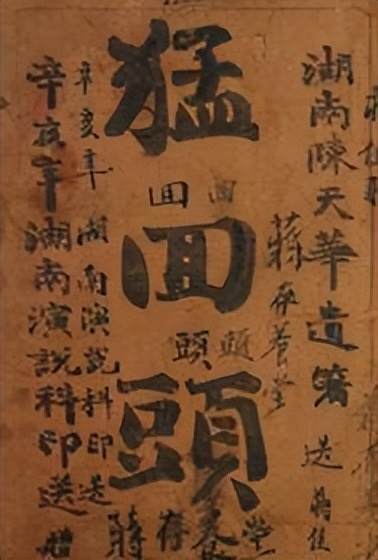 湖南陳天華遺箸
送
蔣存養堂
猛回頭
回 回
頭 頭
辛亥年
湖南演說科印送
辛亥年湖南演說科印送
蔣存